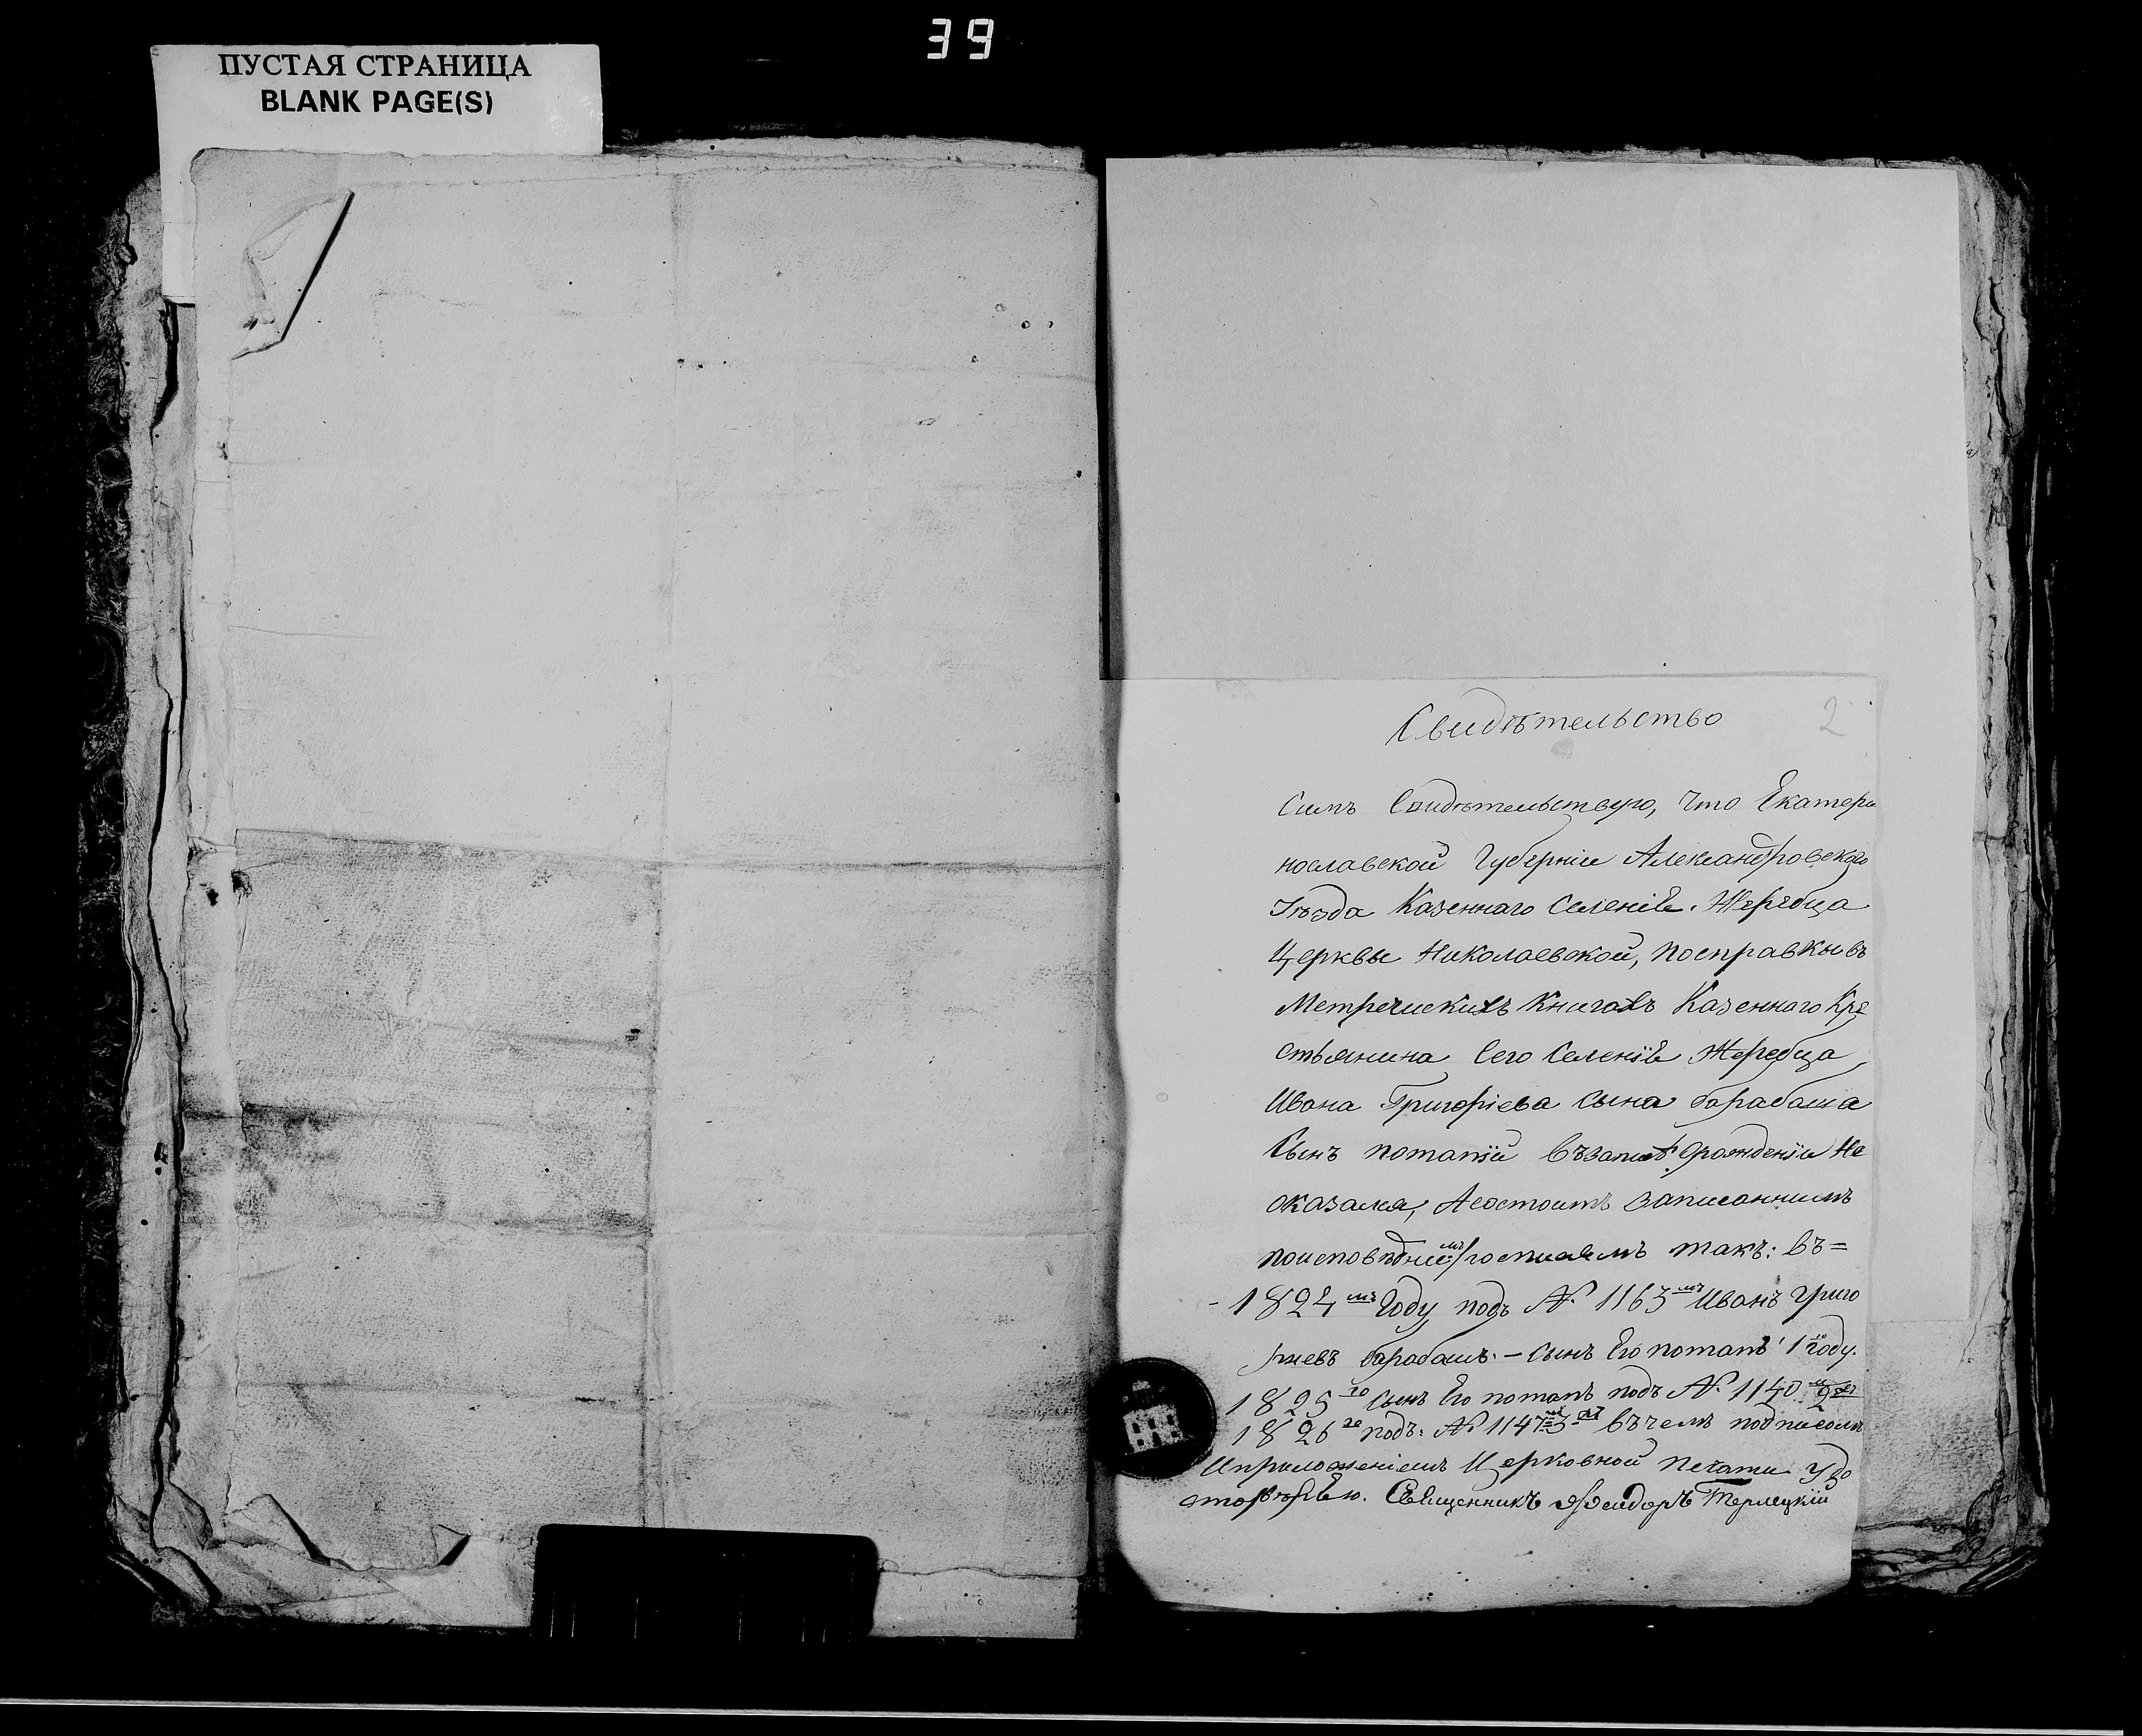 39
ПУСТАЯ СТРАНИЦА
BLANK PAGE(S)
2
Свидѣтельство
Симъ Свидѣтельствую, что Екатери
нославской Губерніи Александровского
Уѣзда Казеннаго Селенія Жеребца
Церквы Николаевской, посправкы въ
Метрическихъ Книгахъ Казеннаго Кре
стьянина Сего Селенія Жеребца
Ивана Григоріева Сына барабаша
Сынъ потапій взаписѣ орожденіи Не
оказался, Асостоитъ Записаннимъ
поисповѣднимъ росписямъ такъ: въ=
- 1824мъ Году подъ №. 1163мъ Иванъ Григо
риевъ барабашъ. – сынъ Его потапъ 1го году.
1825го Сынъ Его потапъ подъ №. 1140 2
1826го подъ: № 1147 3 въчемъ подписомъ
Иприложеніемъ Церковной печати Удо
стовѣряю. Священникъ Феодоръ Терлецкій